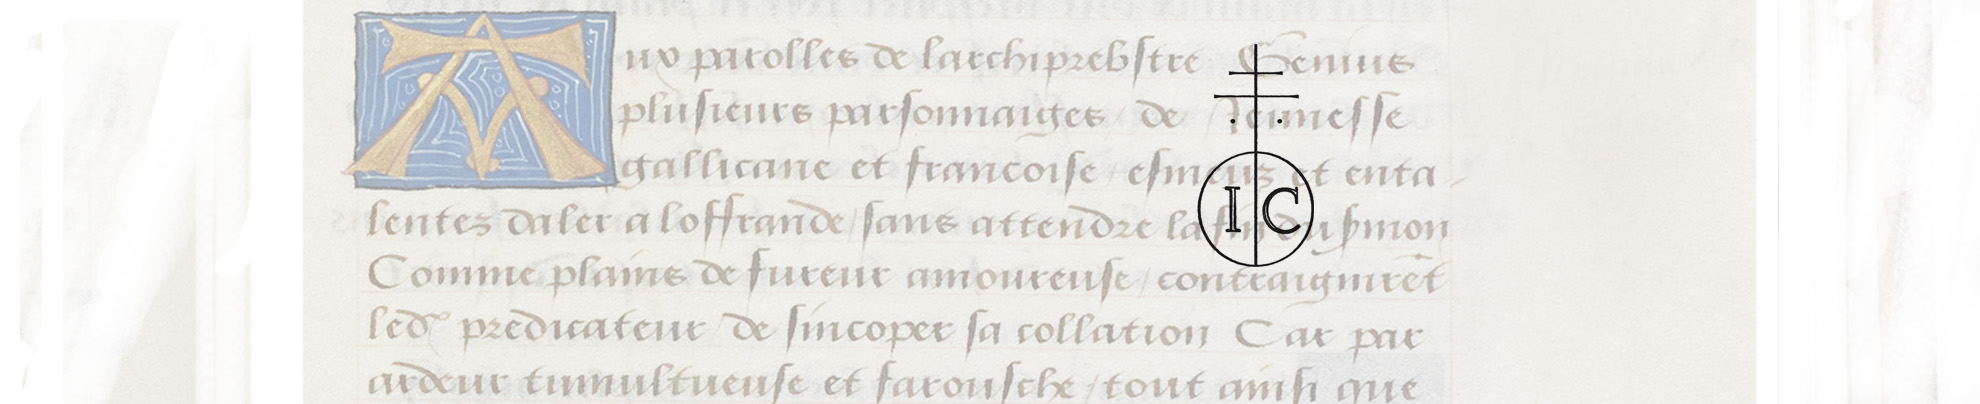 Aux parolles de larchiprebstre Genius
plusieurs parsonnaiges de Jeunesse
gallicane et francoise / esmeuz et enta-
lentez daler a loffrande / sans attendre la fin du sermon
Comme plains de fureur amoureuse / contraignirẽt
led' predicateur de sincoper sa collation Car par
ardeur tumultueuse et farousche / tout ainsi que
I C